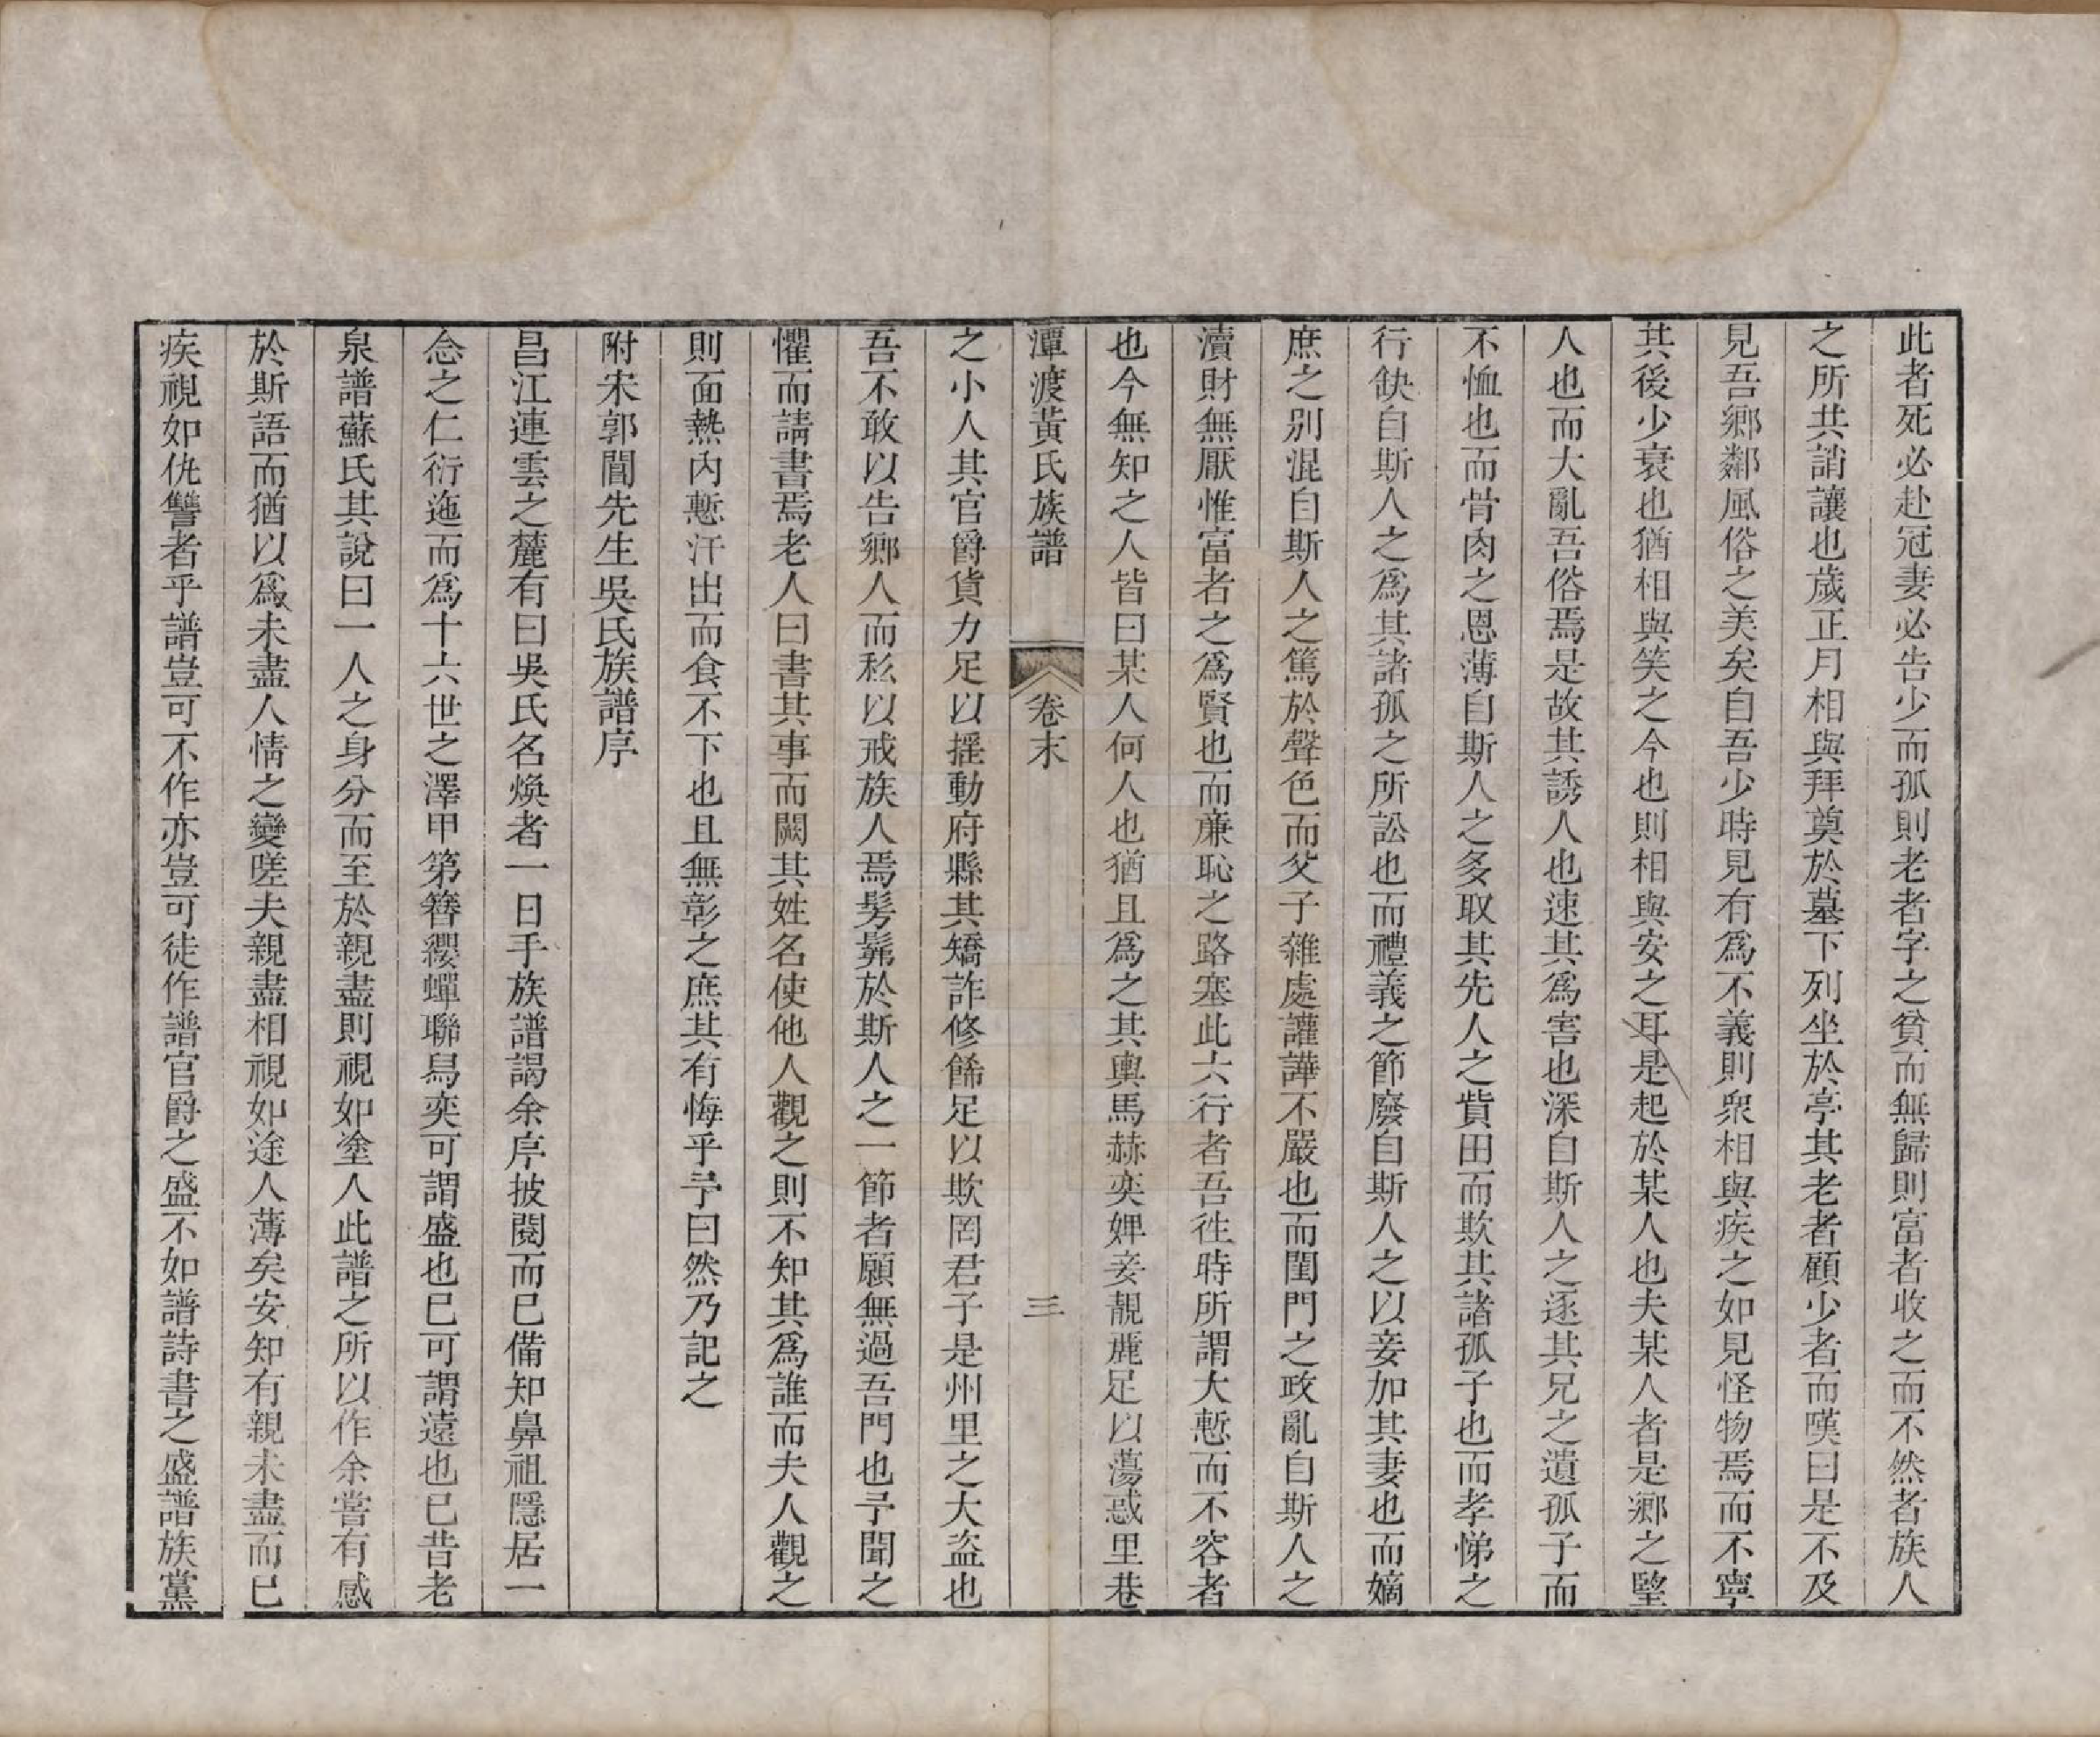 此者死必赴冠妻必告少而孤則老者字之貧而無歸則富者收之而不然者族人
之所共誚讓也歲正月相與拜奠於墓下列坐於亭其老者顧少者而嘆曰是不及
見吾鄉鄰風俗之美矣自吾少時見有爲不義則衆相與疾之如見怪物焉而不寧
其後少衰也猶相與笑之今也則相與安之耳是起於某人也夫某人者是鄉之望
人也而大亂吾俗焉是故其誘人也速其爲害也深自斯人之逐其兄之遺孤子而
不恤也而骨肉之恩薄自斯人之多取其先人之貲田而欺其諸孤子也而孝悌之
行缺自斯人之爲其諸孤之所訟也而禮義之節廢自斯人之以妾加其妻也而嫡
庶之別混自斯人之篤於聲色而父子雜處讙譁不嚴也而閨門之政亂自斯人之
瀆財無厭惟富者之爲賢也而廉恥之路塞此六行者吾徃時所謂大慙而不容者
也今無知之人皆曰某人何人也猶且爲之其輿馬赫奕婢妾靚麗足以蕩惑里巷
潭渡黃氏族譜 卷末 三
之小人其官爵貨力足以摇動府縣其矯詐修餙足以欺罔君子是州里之大盗也
吾不敢以告鄉人而私以戒族人焉髣髴於斯人之一節者願無過吾門也予聞之
懼而請書焉老人曰書其事而闕其姓名使他人觀之則不知其爲誰而夫人觀之
則面熱內慙汗出而食不下也且無彰之庶其有悔乎予曰然乃記之
附宋郭誾先生吳氏族譜序
昌江連雲之麓有曰吳氏名煥者一日手族譜謁余序披閱而已備知鼻祖隱居一
念之仁衍迤而爲十六世之澤甲第簪纓蟬聯舄奕可謂盛也已可謂遠也已昔老
泉譜蘇氏其說曰一人之身分而至於親盡則視如塗人此譜之所以作余嘗有感
於斯語而猶以爲未盡人情之變嗟夫親盡相視如途人薄矣安知有親未盡而已
疾視如仇讐者乎譜豈可不作亦豈可徒作譜官爵之盛不如譜詩書之盛譜族黨